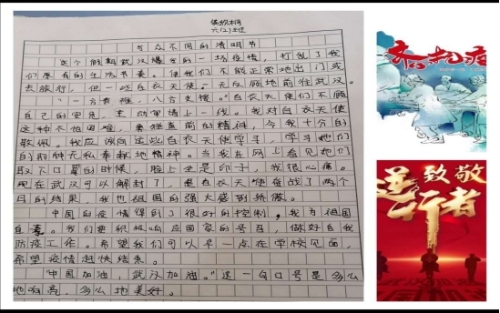 六(2)班
与众不同的清明节
这个假期武汉爆发的一场疫情，打乱了我
们原有的生活节奏。使我们不能正常地出门或
去旅行，但一些白衣天使。无反顾地前往武汉。
"一方有难，八方支援。"白衣天使们不顾
自己的安危，主动申请上一线。我对白衣天使
这种不怕困难，勇往直前的精神，
敬佩。我应该向这些白衣天使学习，学习她们
的那种无私奉献地精神。当我在网上看见她们
取下口罩的时候，脸上全是印子，我很心痛。
现在武汉可以解封了，是白衣天使奋战了两个
月的结果，我也祖国的强大感到骄傲。
中国的疫情得到了很好的控制，我为祖国
自豪。我们要积极响应国家的号召，做好自我
防疫工作。希望我们可以早一点在学校见面，
希望疫情赶快结束。
"中国加油，武汉加油。"这一句口号是多么
地响亮，多么地美好。
齐抗疫
致敬
逆行者